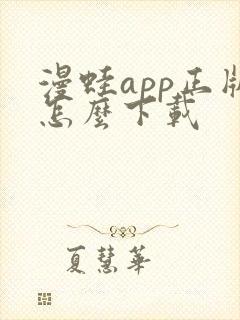 漫蛙app正版
怎麼下載
夏慧華